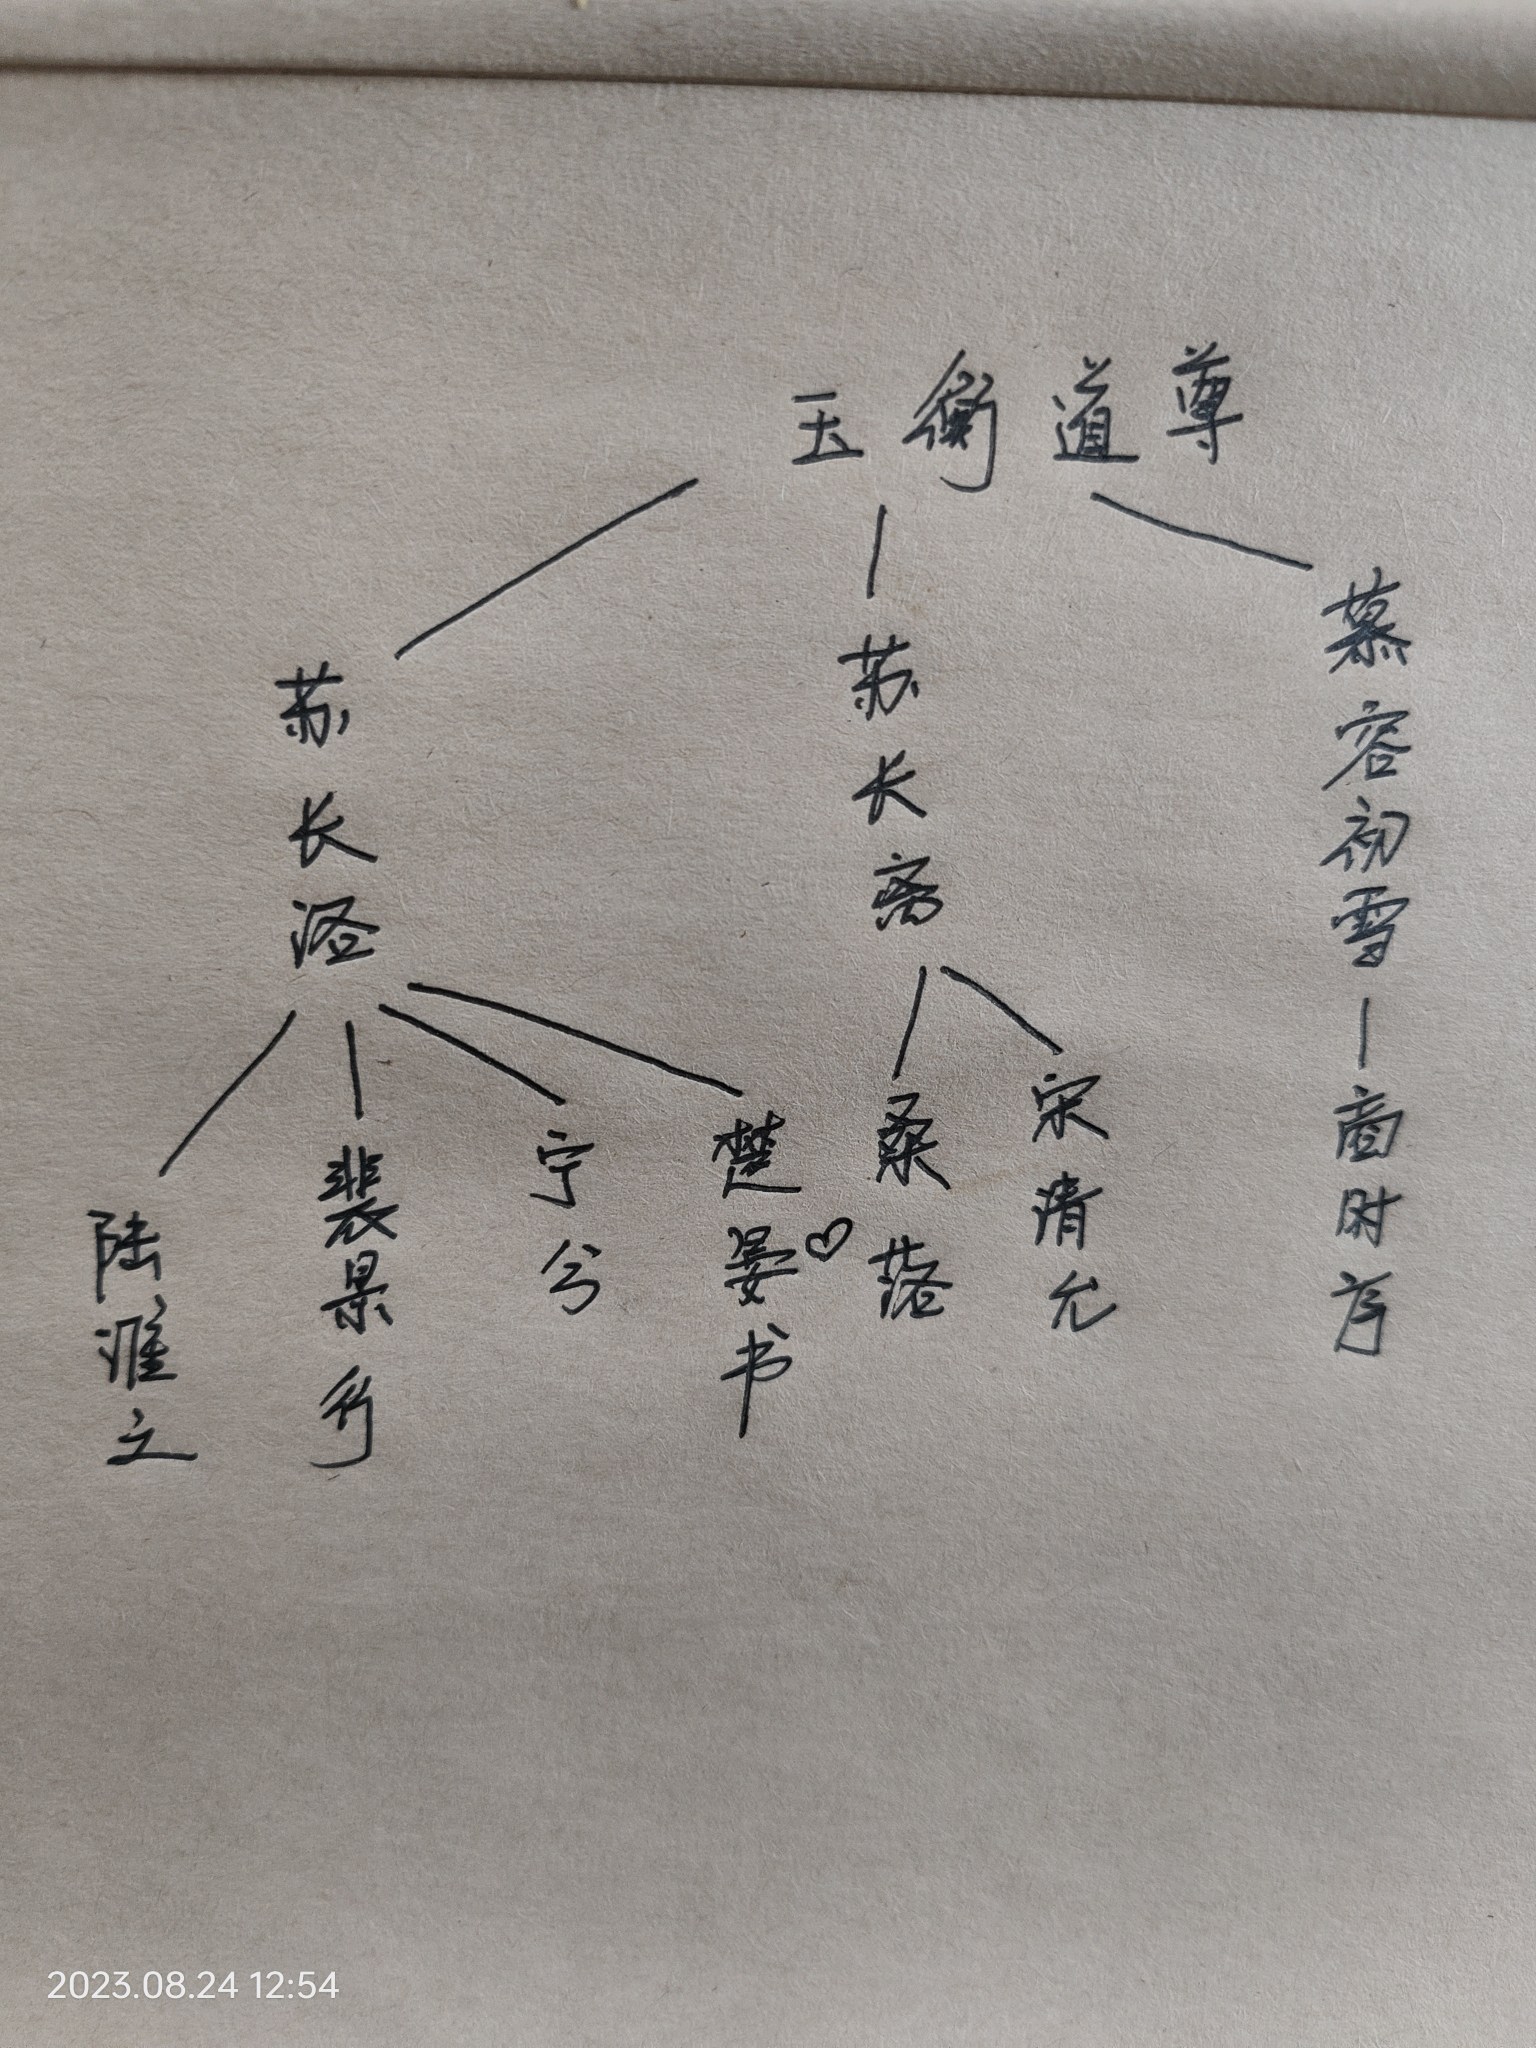 玉衡道尊
苏长泾
苏长离
慕容初雪
陆淮之
裴景行
宁兮
楚晏书
桑落
宋清允
商时序
2023.08.24 12:54